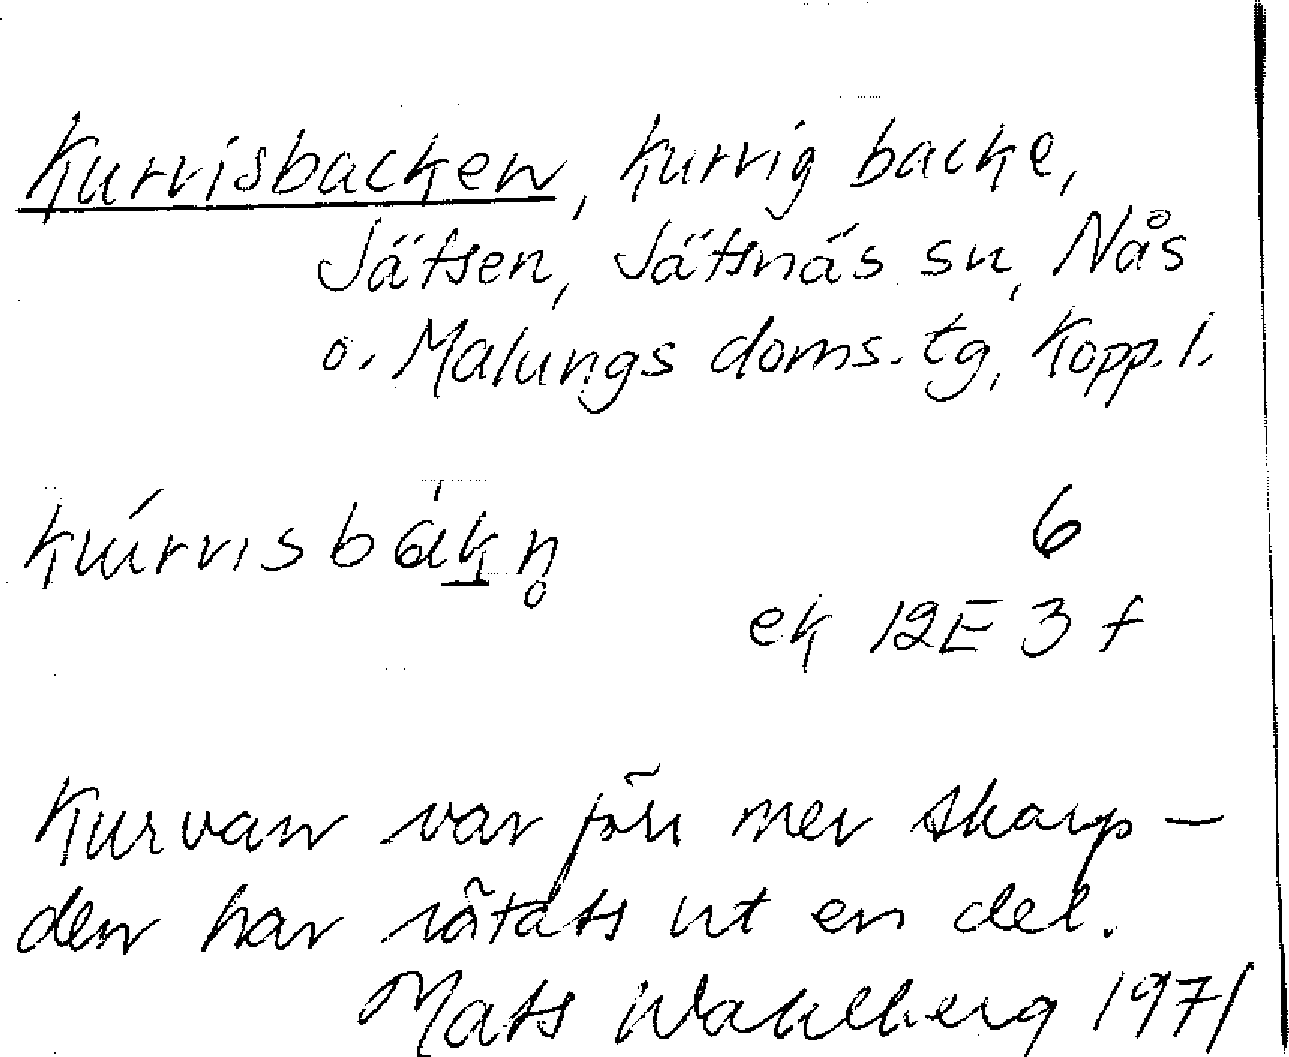 Kurvisbacken, kurvig backe,
Jätsen, Jättsnäs sn, Nås
o. Malungs doms. tg, Kopp. l.
6
ek 12E 3 f
Kurvan var förr mer skarp –
den har rätats ut en del.
Mats Wahlberg 1971